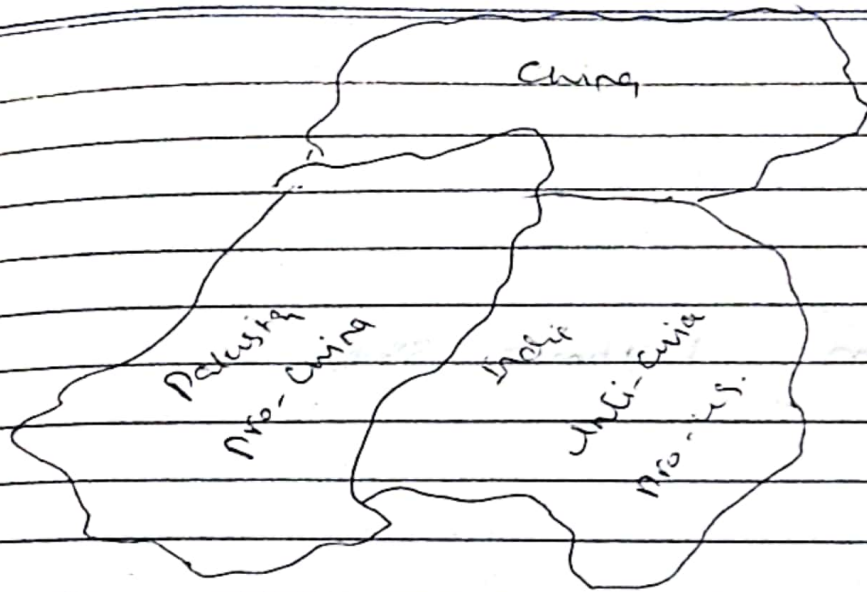 China
Pakistan
Pro-China
India
Anti-China
Pro-U.S.